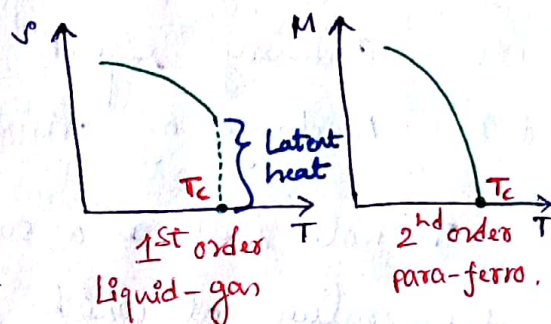 ρ
M
Latent
heat
Tc
T
Tc
T
1st order
Liquid-gas
2nd order
para-ferro.